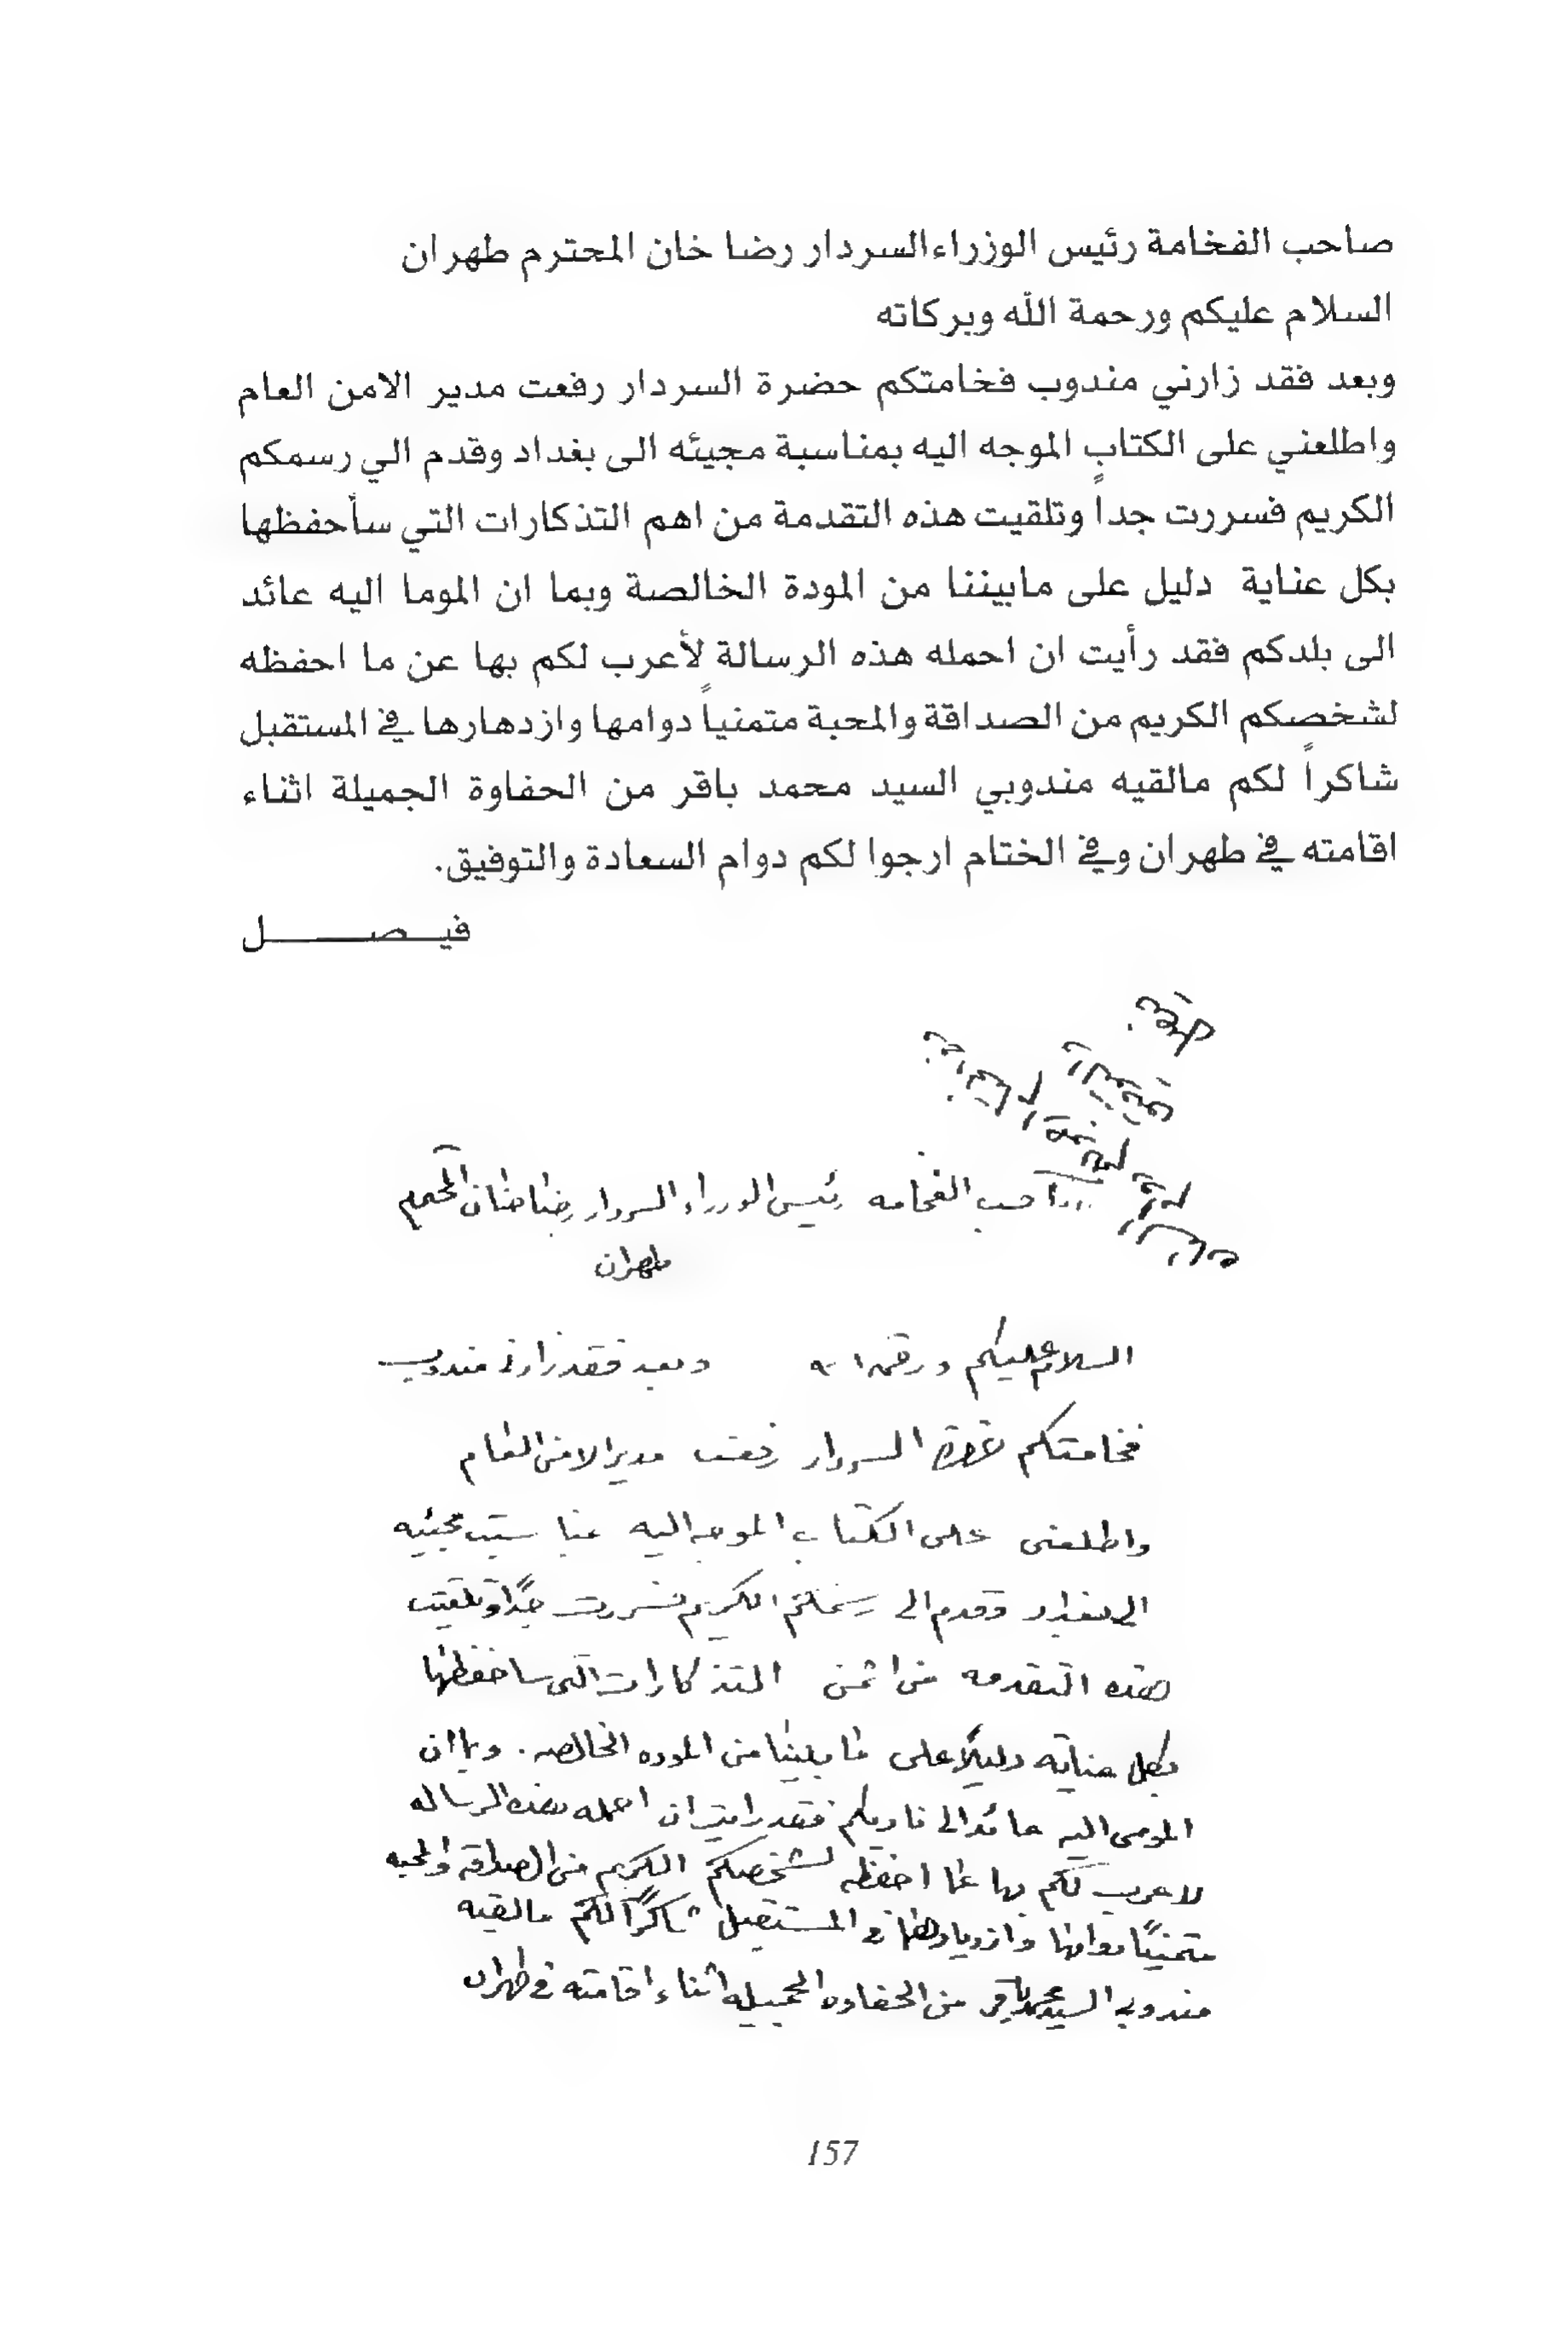 صاحب الفخامة رئيس الوزراء السردار رضا خان المحترم طهران
السلام عليكم ورحمة الله وبركاته
وبعد فقد زارني مندوب فخامتكم حضرة السردار رفعت مدير الامن العام
واطلعني على الكتاب الموجه اليه بمناسبة مجيئه الى بغداد وقدم الي رسمكم
الكريم فسررت جداً وتلقيت هذه التقدمة من اهم التذكارات التي سأحفظها
بكل عناية دليل على مابيننا من المودة الخالصة وبما ان الموما اليه عائد
الى بلدكم فقد رأيت ان احمله هذه الرسالة لأعرب لكم بها عن ما احفظه
لشخصكم الكريم من الصداقة والمحبة متمنياً دوامها وازدهارها في المستقبل
شاكراً لكم مالقيه مندوبي السيد محمد باقر من الحفاوة الجميلة اثناء
اقامته في طهران وفي الختام ارجوا لكم دوام السعادة والتوفيق.
فيصل
صاحب الفخامه رئيس الوزراء السردار رضا خان المحترم
طهران
السلام عليكم ورحمة الله وبعد فقد زارني مندوب
فخامتكم حضرة السردار رفعت مدير الامن العام
واطلعني على الكتاب الموجه اليه بمناسبة مجيئه
الى بغداد وقدم الي رسمكم الكريم فسررت جداً وتلقيت
هذه التقدمه من اثمن التذكارات التي ساحفظها
بكل عنايه دليلاً على ما بيننا من الموده الخالصه. وبما ان
المومى اليه عائد الى فقد رايت ان احمله هذه الرساله
لاعرب لكم بها عما احفظه لشخصكم الكريم من الصداقه والمحبه
متمنياً دوامها وازديادها في المستقبل شاكراً لكم مالقيه
مندوبي السيد محمد باقر من الحفاوه الجميله اثناء اقامته في طهران
157